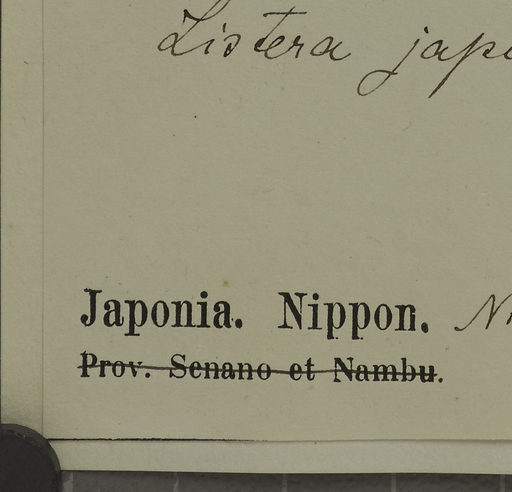 Listera
Japonia. Nippon.
Prov. Senano et Nambu.